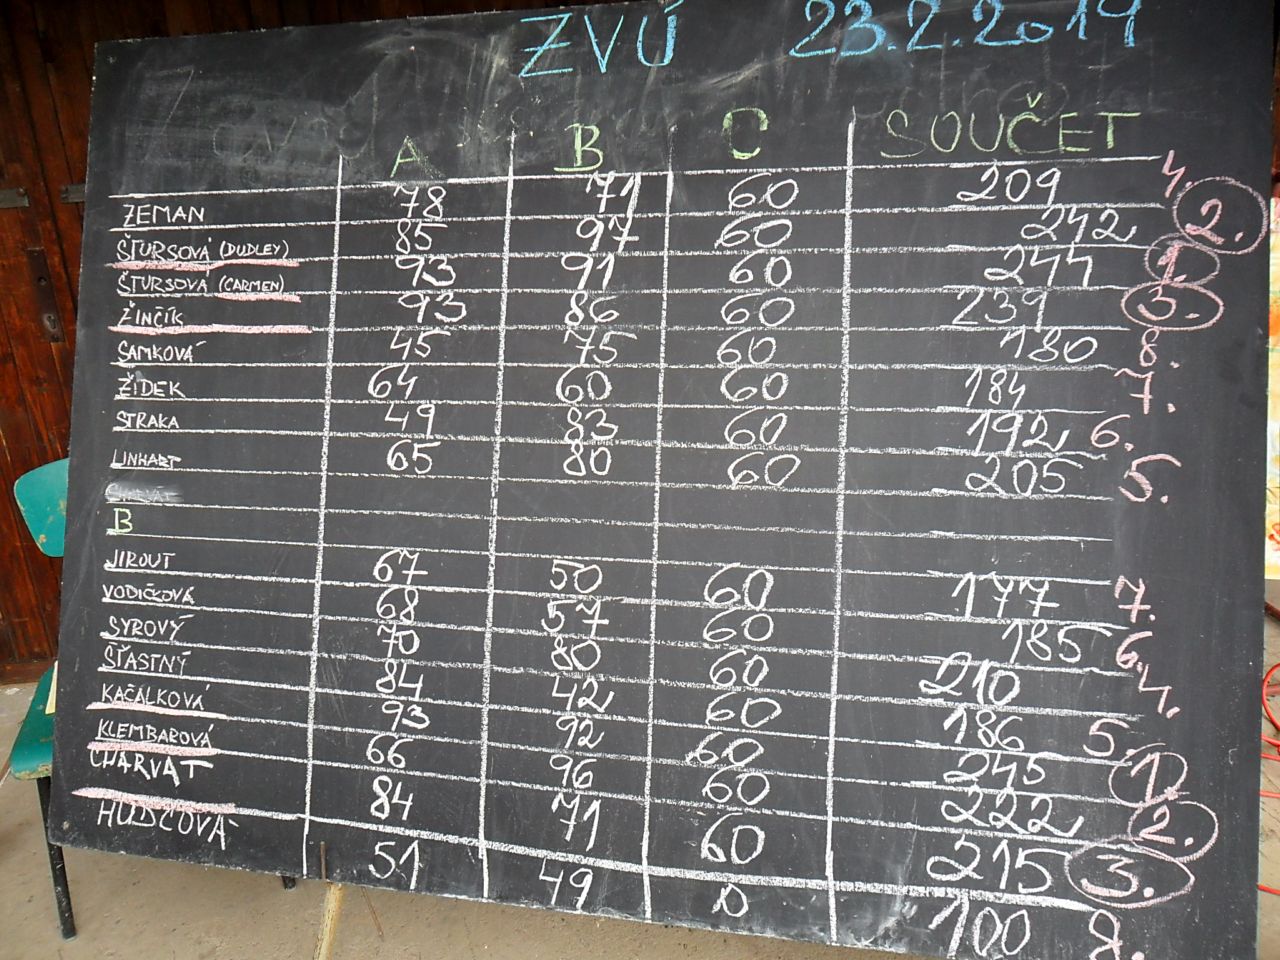 ZVÚ 23.2.2019
A B C SOUČET
ŽEMAN 78 71 60 209 4.
ŠTURSOVÁ (DUDLEY) 85 97 60 242 2.
ŠTURSOVÁ (CARMEN) 93 91 60 244 1.
ŽINČÍK 93 86 60 239 3.
SAMKOVÁ 45 75 60 180 8.
ŽIDEK 64 60 60 184 7.
STRAKA 49 83 60 192 6.
LINHART 65 80 60 205 5.
B
JIROUT 67 50 60 177 7.
VODIČKOVÁ 68 57 60 185 6.
SYROVÝ 70 80 60 210 4.
ŠŤASTNÝ 84 42 60 186 5.
KAČÁLKOVÁ 93 92 60 245 1.
KLEMBAROVÁ 66 96 60 222 2.
CHARVÁT 84 71 60 215 3.
HUDCOVÁ 51 49 0 100 8.